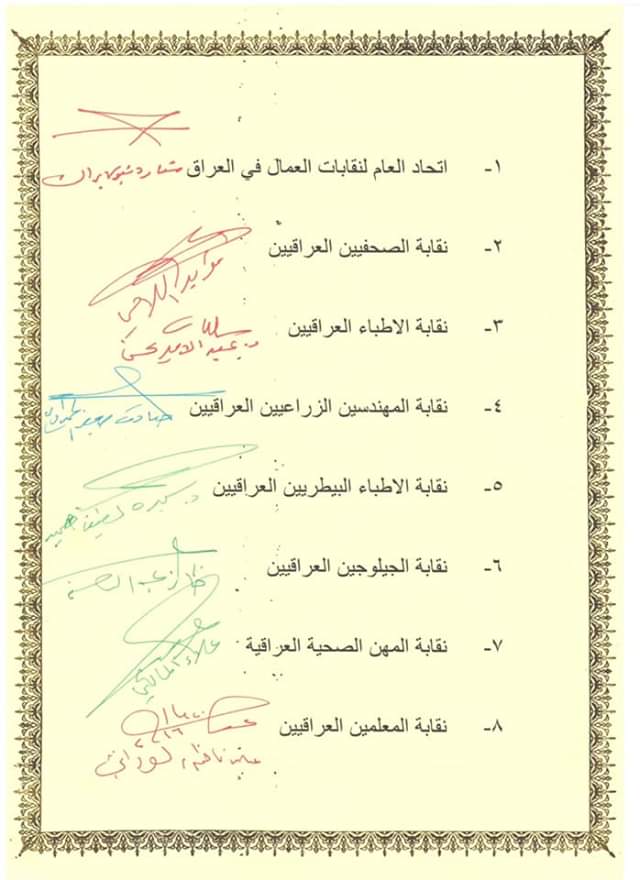 ١- اتحاد العام لنقابات العمال في العراق
٢- نقابة الصحفيين العراقيين
مؤيد اللامي
٣- نقابة الاطباء العراقيين
د. عبد الامير محسن
٤- نقابة المهندسين الزراعيين العراقيين
٥- نقابة الاطباء البيطريين العراقيين
٦- نقابة الجيلوجين العراقيين
٧- نقابة المهن الصحية العراقية
علاء المالكي
٨- نقابة المعلمين العراقيين